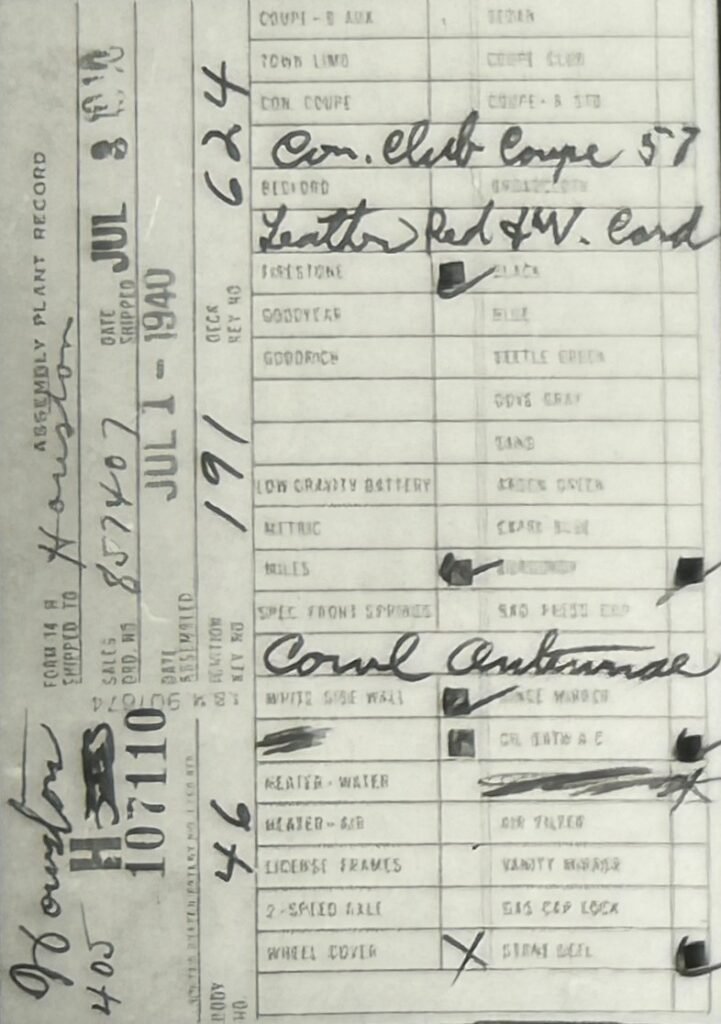 FORM 14 R ASSEMBLY PLANT RECORD
SHIPPED TO Houston
SALES ORD. NO 857407 DATE SHIPPED JUL 3 1940
DATE ASSEMBLED JUL 1 - 1940
IGNITION KEY NO 191 DECK KEY NO 624
BODY NO. 46
Houston
405 H
107110
COUPE - B AUX
TOWN LIMO COUPE CLUB
CON. COUPE COUPE - B STD
Con. Club Coupe 57
BEDFORD BROADCLOTH
Leather Red & W. Cord
FIRESTONE BLACK
GOODYEAR BLUE
GOODRICH
DOVE GRAY
SAND
LOW GRAVITY BATTERY
METRIC
MILES
SPEC FRONT SPRINGS RAD PRESS CAP
Cowl Antennae
WHITE SIDE WALL
HEATER - WATER
HEATER - AIR AIR FILTER
LICENSE FRAMES VANITY MIRROR
2 - SPEED AXLE GAS CAP LOCK
WHEEL COVER